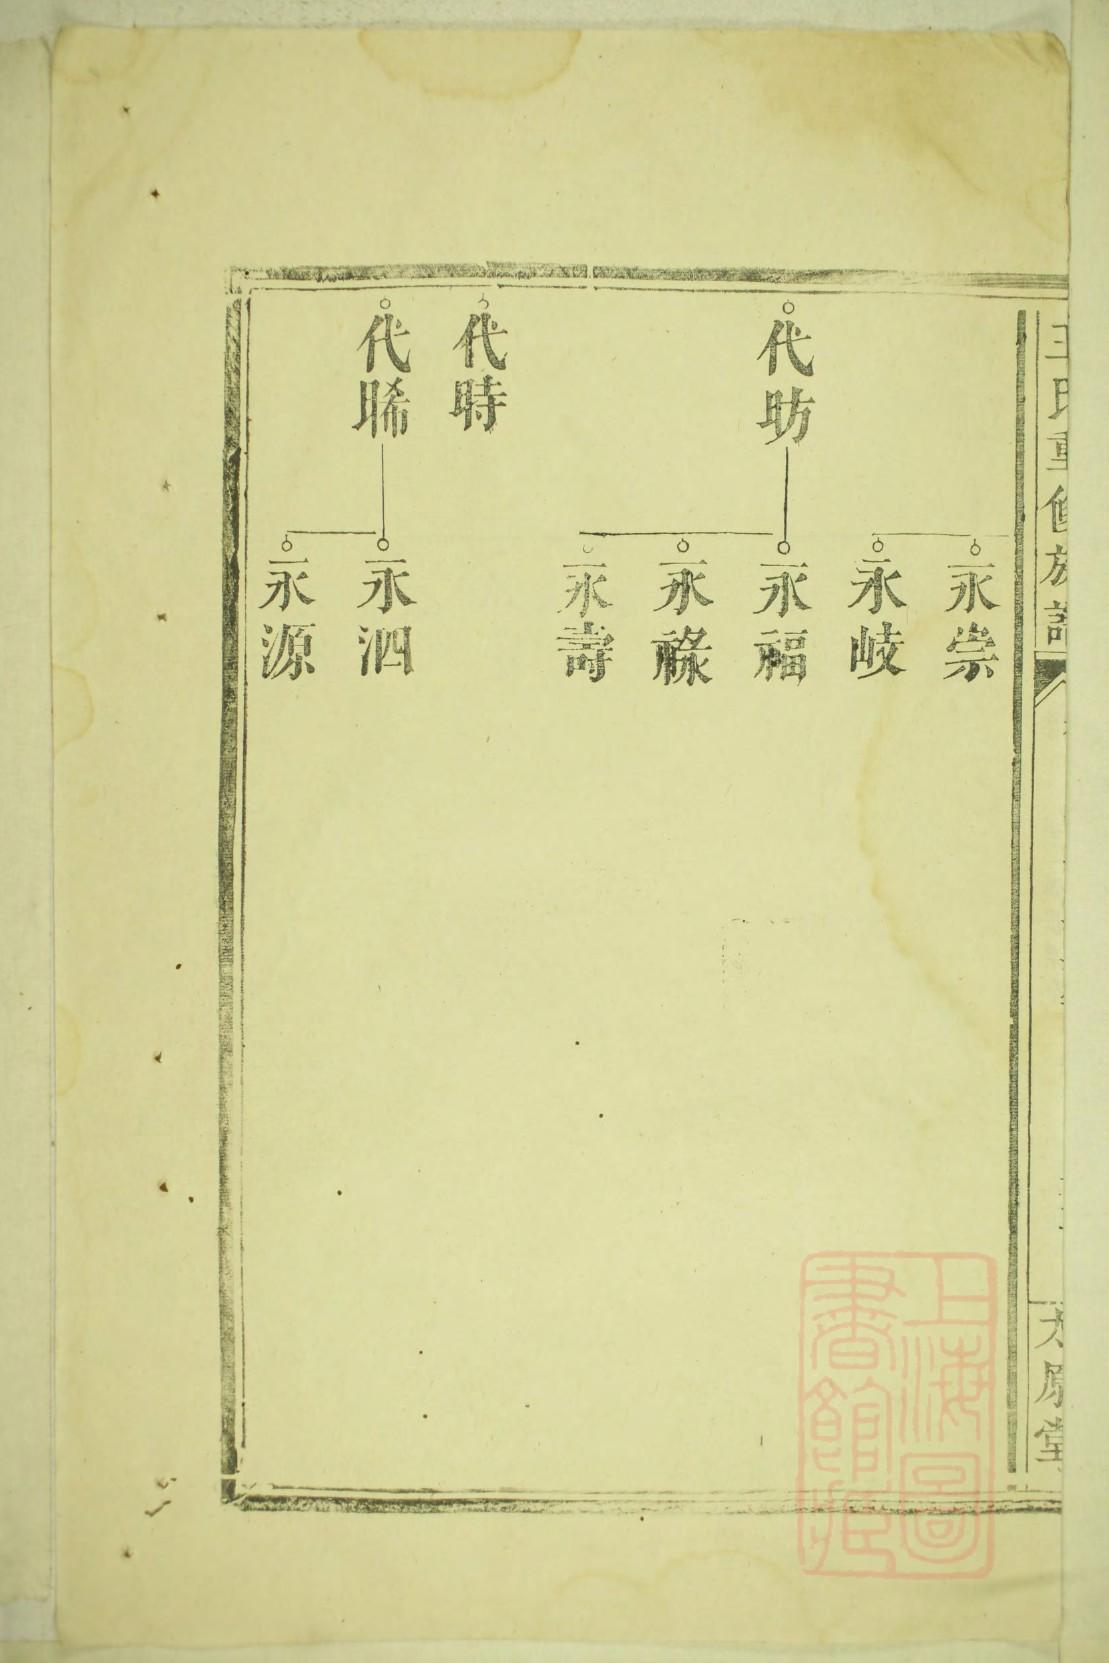 王氏重修族譜
太原堂
代昉
代時
代晞
永崇
永岐
永福
永祿
永壽
永泗
永源
上海圖
書館藏